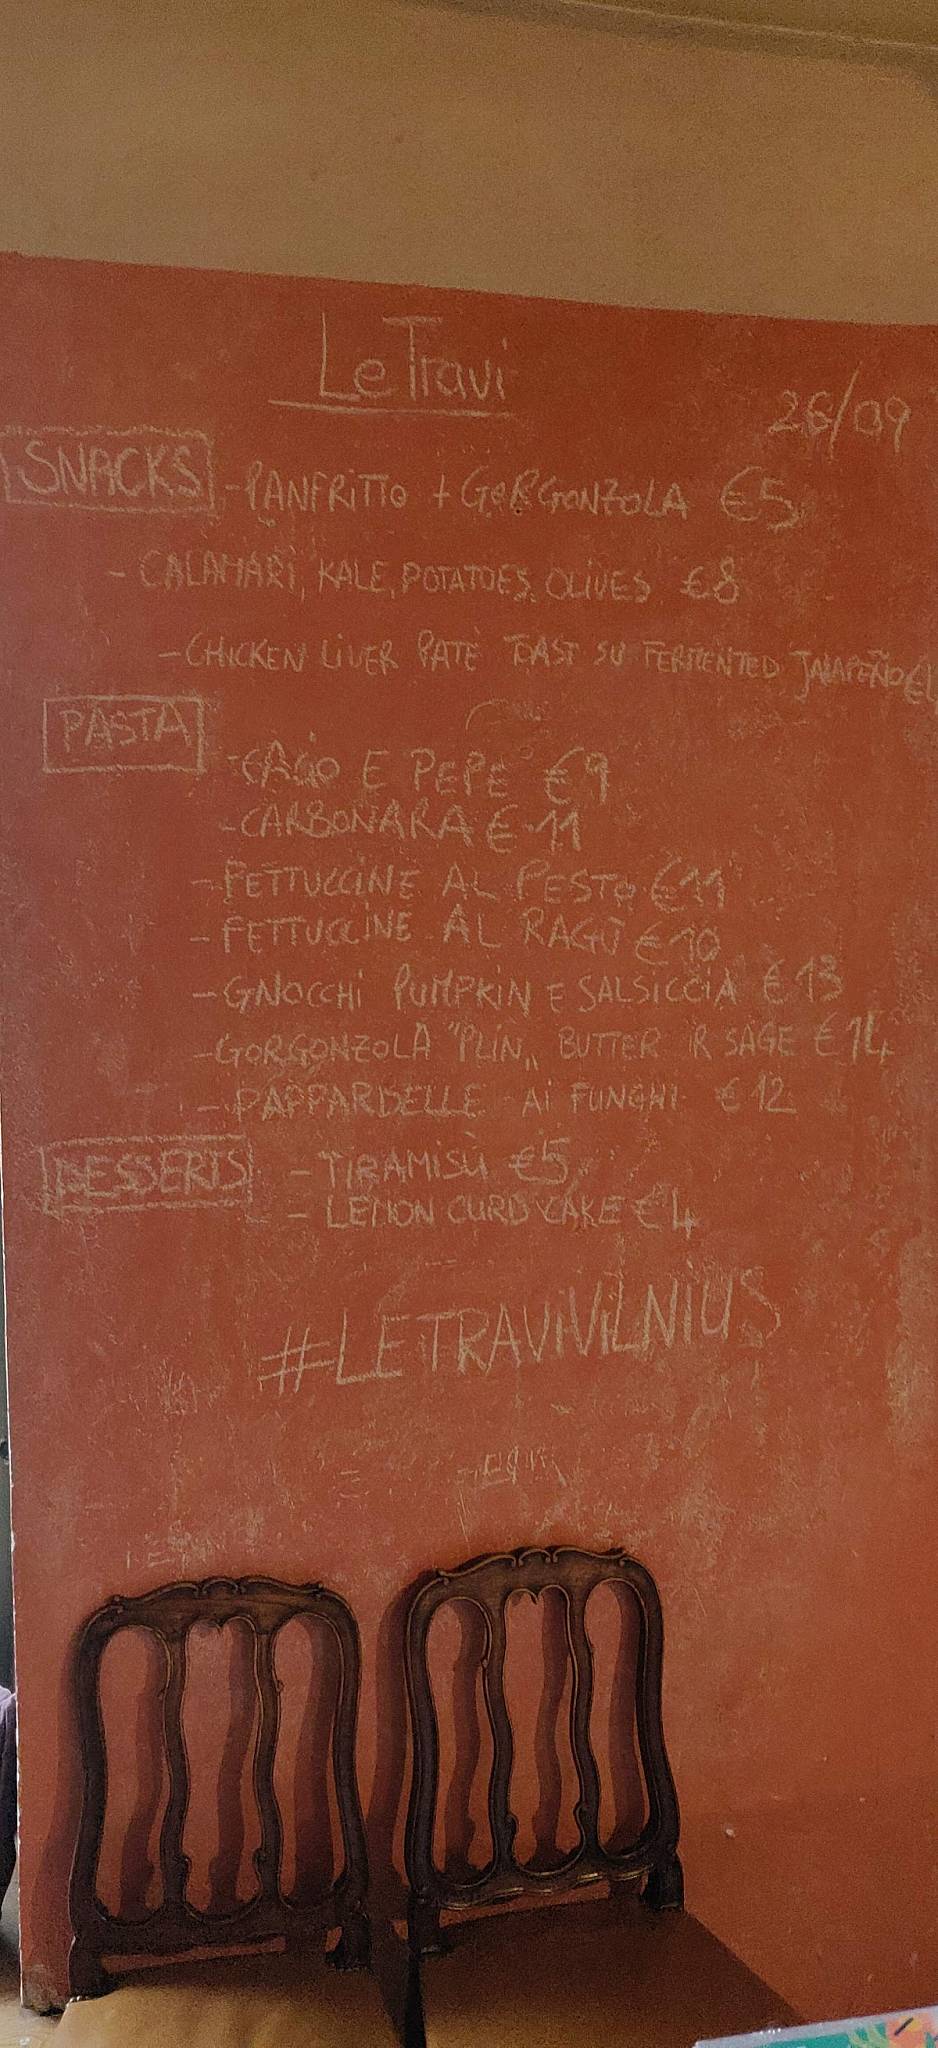 Le Travi
26/09
SNACKS - PANFRITTO + GORGONZOLA €5
- CALAMARI, KALE, POTATOES, OLIVES €8
- CHICKEN LIVER PATÈ TOAST SU FERMENTED JALAPEÑO €4
PASTA
- CACIO E PEPE €9
- CARBONARA €11
- FETTUCCINE AL PESTO €11
- FETTUCCINE AL RAGÙ €10
- GNOCCHI PUMPKIN E SALSICCIA €13
- GORGONZOLA "PLIN„ BUTTER IR SAGE €14
- PAPPARDELLE AI FUNGHI €12
DESSERTS - TIRAMISÙ €5
- LEMON CURD CAKE €4
#LETRAVIVILNIUS